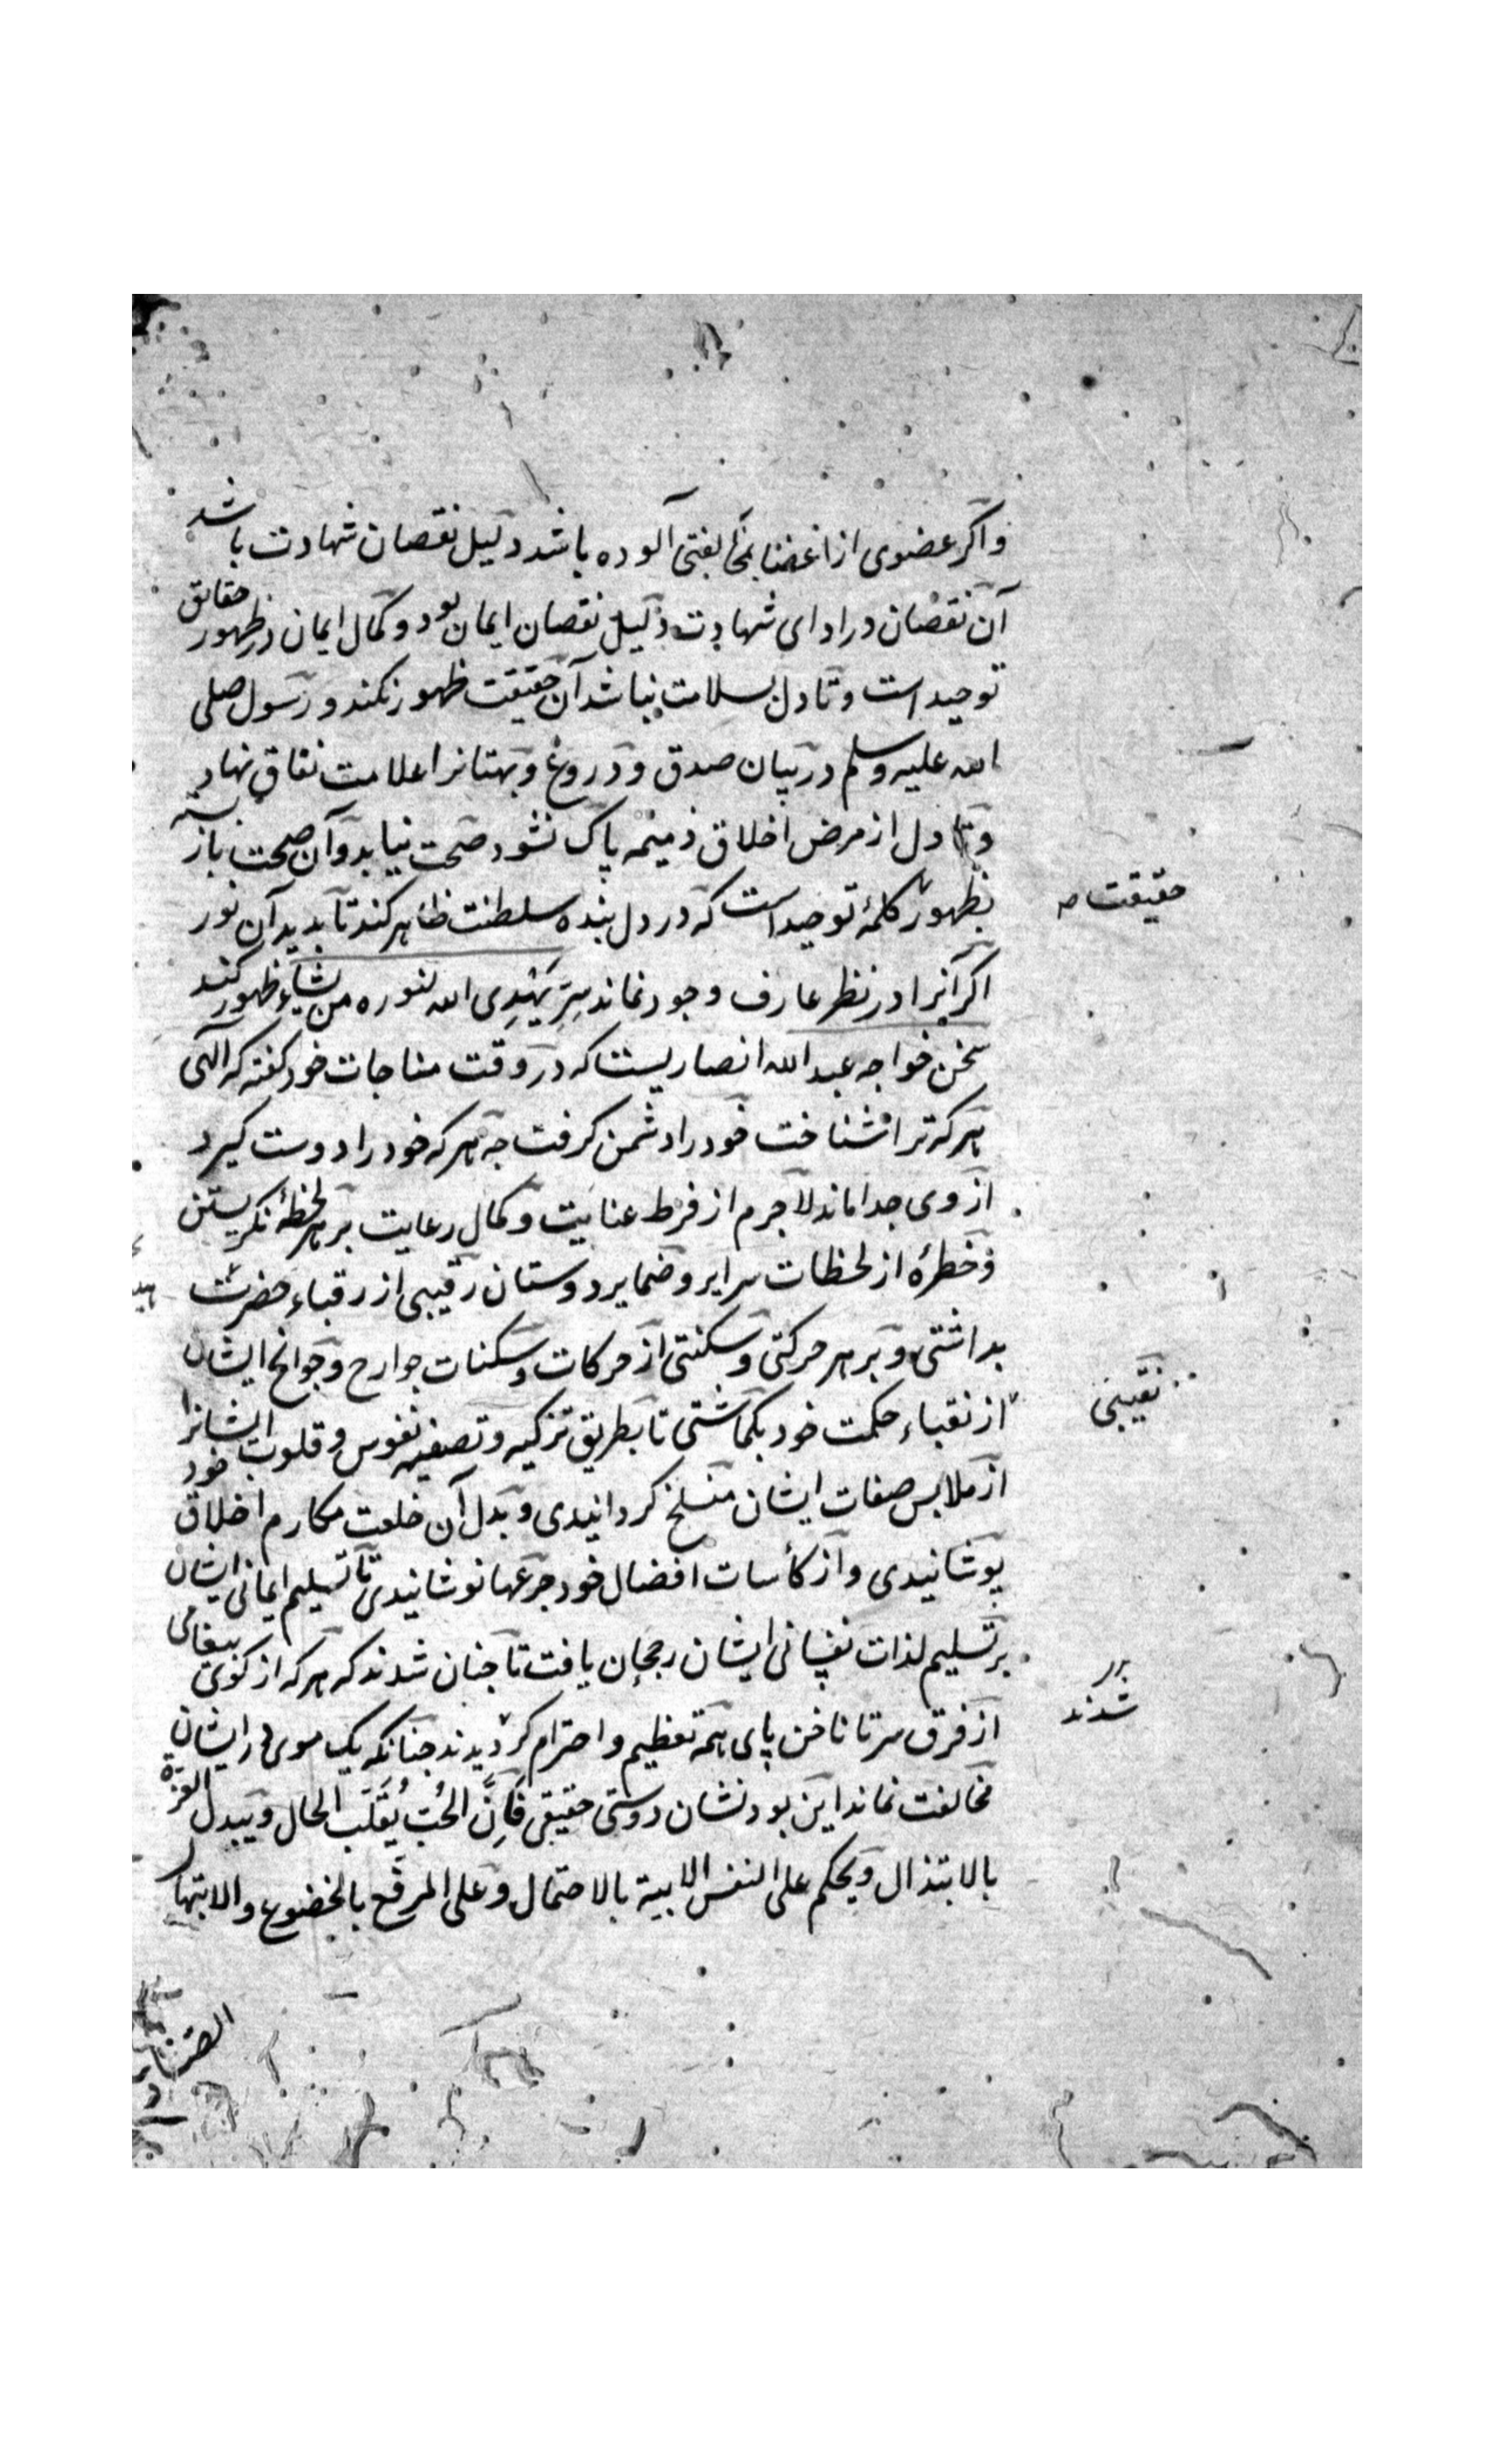 واکر عضوی از اعضا بمخالفتی آلوده باشد دلیل نقصان شهادت باشد
آن نقصان در ادای شهادت دلیل نقصان ایمان بود و کمال ایمان در ظهور حقایق
توحید است و تا دل بسلامت نباشد آن حقیقت ظهور نکند و رسول صلی
الله علیه وسلم در بیان صدق و دروغ و بهتانرا علامت نفاق نهاد
و تا دل از مرض اخلاق ذمیمه پاک نشود صحت نیابد و آن صحت باز بسته
بظهور کلمهٔ توحید است که در دل بنده سلطنت ظاهر کند تا بدید آن نور
حقیقت صه
اکر آنرا در نظر عارف وجود نماند سِرّ یَهْدِی الله لنوره من یشاء ظهور کند
سخن خواجه عبد الله انصاریست که در وقت مناجات خود کفته که الهی
هرکه ترا شناخت خود را دشمن کرفت چه هرکه خود را دوست کیرد
از وی جدا ماند لاجرم از فرط عنایت و کمال رعایت بر هر لحظهٔ نکریستن
و خطرهٔ از لحظات سرایر و ضمایر دوستان رقیبی از رقباء حضرت
بداشتی و بر هر حرکتی و سکنتی از حرکات و سکنات جوارح و جوانح ایشان
نقیبی
از نقباء حکمت خود بکماشتی تا بطریق تزکیه و تصفیه نفوس و قلوب ایشانرا
از ملابس صفات ایشان منسلخ کردانیدی و بدل آن خلعت مکارم اخلاق خود
پوشانیدی و از کأسات افضال خود جرعها نوشانیدی تا تسلیم ایمانی ایشان
بر تسلیم لذات نفسانی ایشان رجحان یافت تا چنان شدند که هرکه از کوی بیغامی
شدند
از فرق سر تا ناخن پای همه تعظیم و احترام کردیدند چنانکه یک موی در ایشان
مخالفت نماند این بود نشان دوستی حقیقی فَاِنَّ الحُبّ یُقَلّبُ الحال ویبدل العزة
بالابتذال ویحکم علی النفس الابیة بالاحتمال وعلی المرقع بالخضوع والابتهال